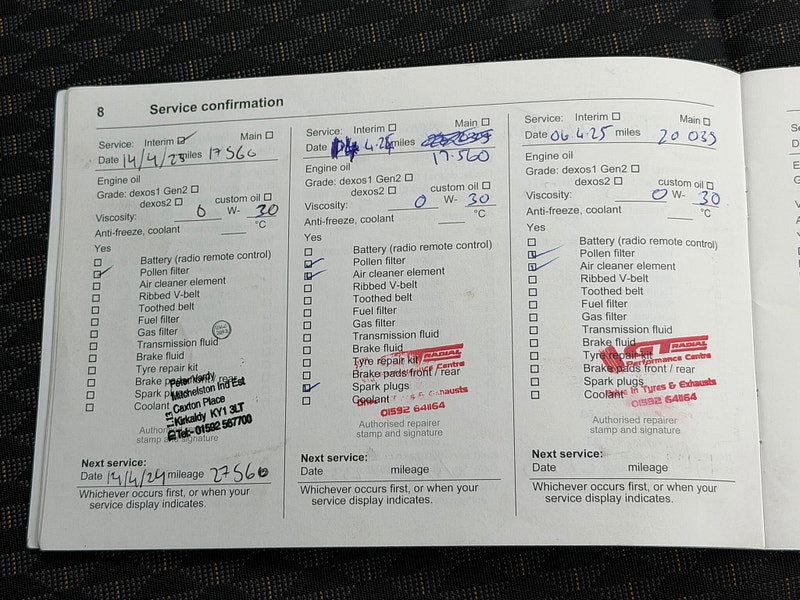 8 Service confirmation
Service: Interim Main
Date 14/4/23 miles 17560
Engine oil
Grade: dexos1 Gen2
dexos2 custom oil
Viscosity: 0 W- 30
Anti-freeze, coolant °C
Yes
Battery (radio remote control)
Pollen filter
Air cleaner element
Ribbed V-belt
Toothed belt
Fuel filter
Gas filter
Transmission fluid
Brake fluid
Tyre repair kit
Brake pads front / rear
Spark plugs
Coolant
Peter Vardy
Mitchelston Ind Est
Caxton Place
Kirkaldy KY1 3LT
Tel:- 01592 567700
Authorised repairer
stamp and signature
Next service:
Date 14/4/24 mileage 27560
Whichever occurs first, or when your
service display indicates.
Service: Interim Main
Date 4.24 miles
17.560
Engine oil
Grade: dexos1 Gen2
dexos2 custom oil
Viscosity: 0 W- 30
Anti-freeze, coolant °C
Yes
Battery (radio remote control)
Pollen filter
Air cleaner element
Ribbed V-belt
Toothed belt
Fuel filter
Gas filter
Transmission fluid
Brake fluid
Tyre repair kit
Brake pads front / rear
Spark plugs
Coolant
GT RADIAL
Performance Centre
& Exhausts
01592 641164
Authorised repairer
stamp and signature
Next service:
Date mileage
Whichever occurs first, or when your
service display indicates.
Service: Interim Main
Date 06.4.25 miles 20 039
Engine oil
Grade: dexos1 Gen2
dexos2 custom oil
Viscosity: 0 W- 30
Anti-freeze, coolant °C
Yes
Battery (radio remote control)
Pollen filter
Air cleaner element
Ribbed V-belt
Toothed belt
Fuel filter
Gas filter
Transmission fluid
Brake fluid
Tyre repair kit
Brake pads front / rear
Spark plugs
Coolant
GT RADIAL
Performance Centre
in Tyres & Exhausts
01592 641164
Authorised repairer
stamp and signature
Next service:
Date mileage
Whichever occurs first, or when your
service display indicates.